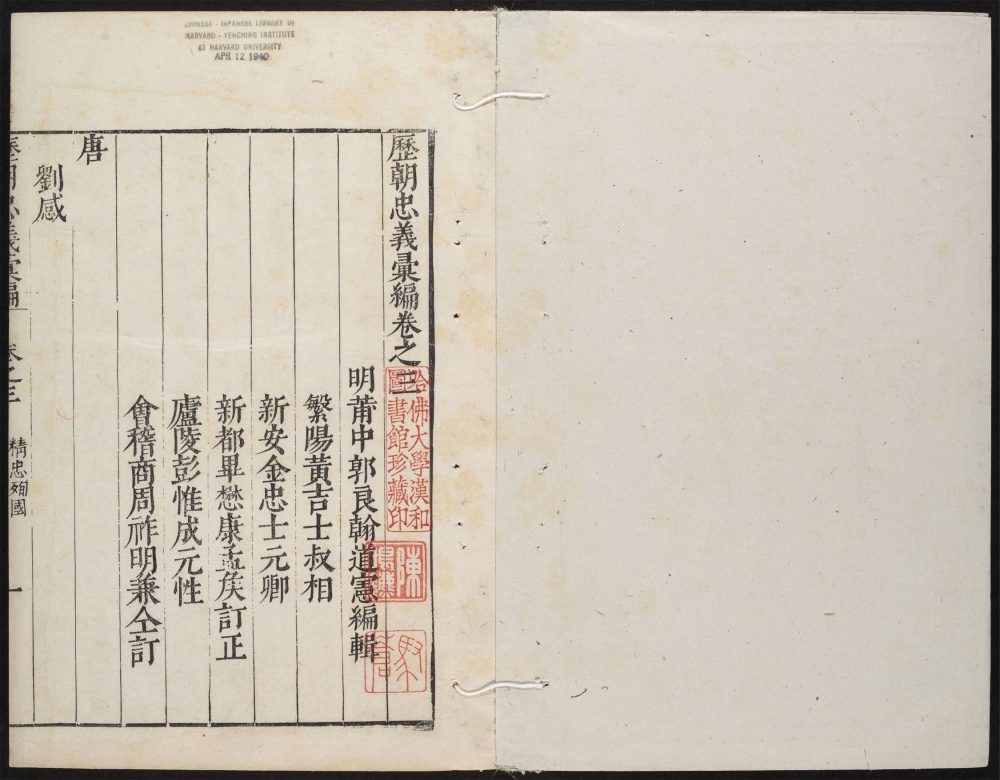 CHINESE - JAPANESE LIBRARY OF
HARVARD - YENCHING INSTITUTE
AT HARVARD UNIVERSITY
APR 12 1940
歷朝忠義彙編卷之三
哈佛大學漢和
圖書館珍藏印
明莆中郭良翰道憲編輯
繁陽黃吉士叔相
新安金忠士元卿
新都畢懋康孟矦訂正
廬陵彭惟成元性
會稽商周祚明兼仝訂
唐
劉感
歷朝忠義彙編
卷之三
精忠殉國
一